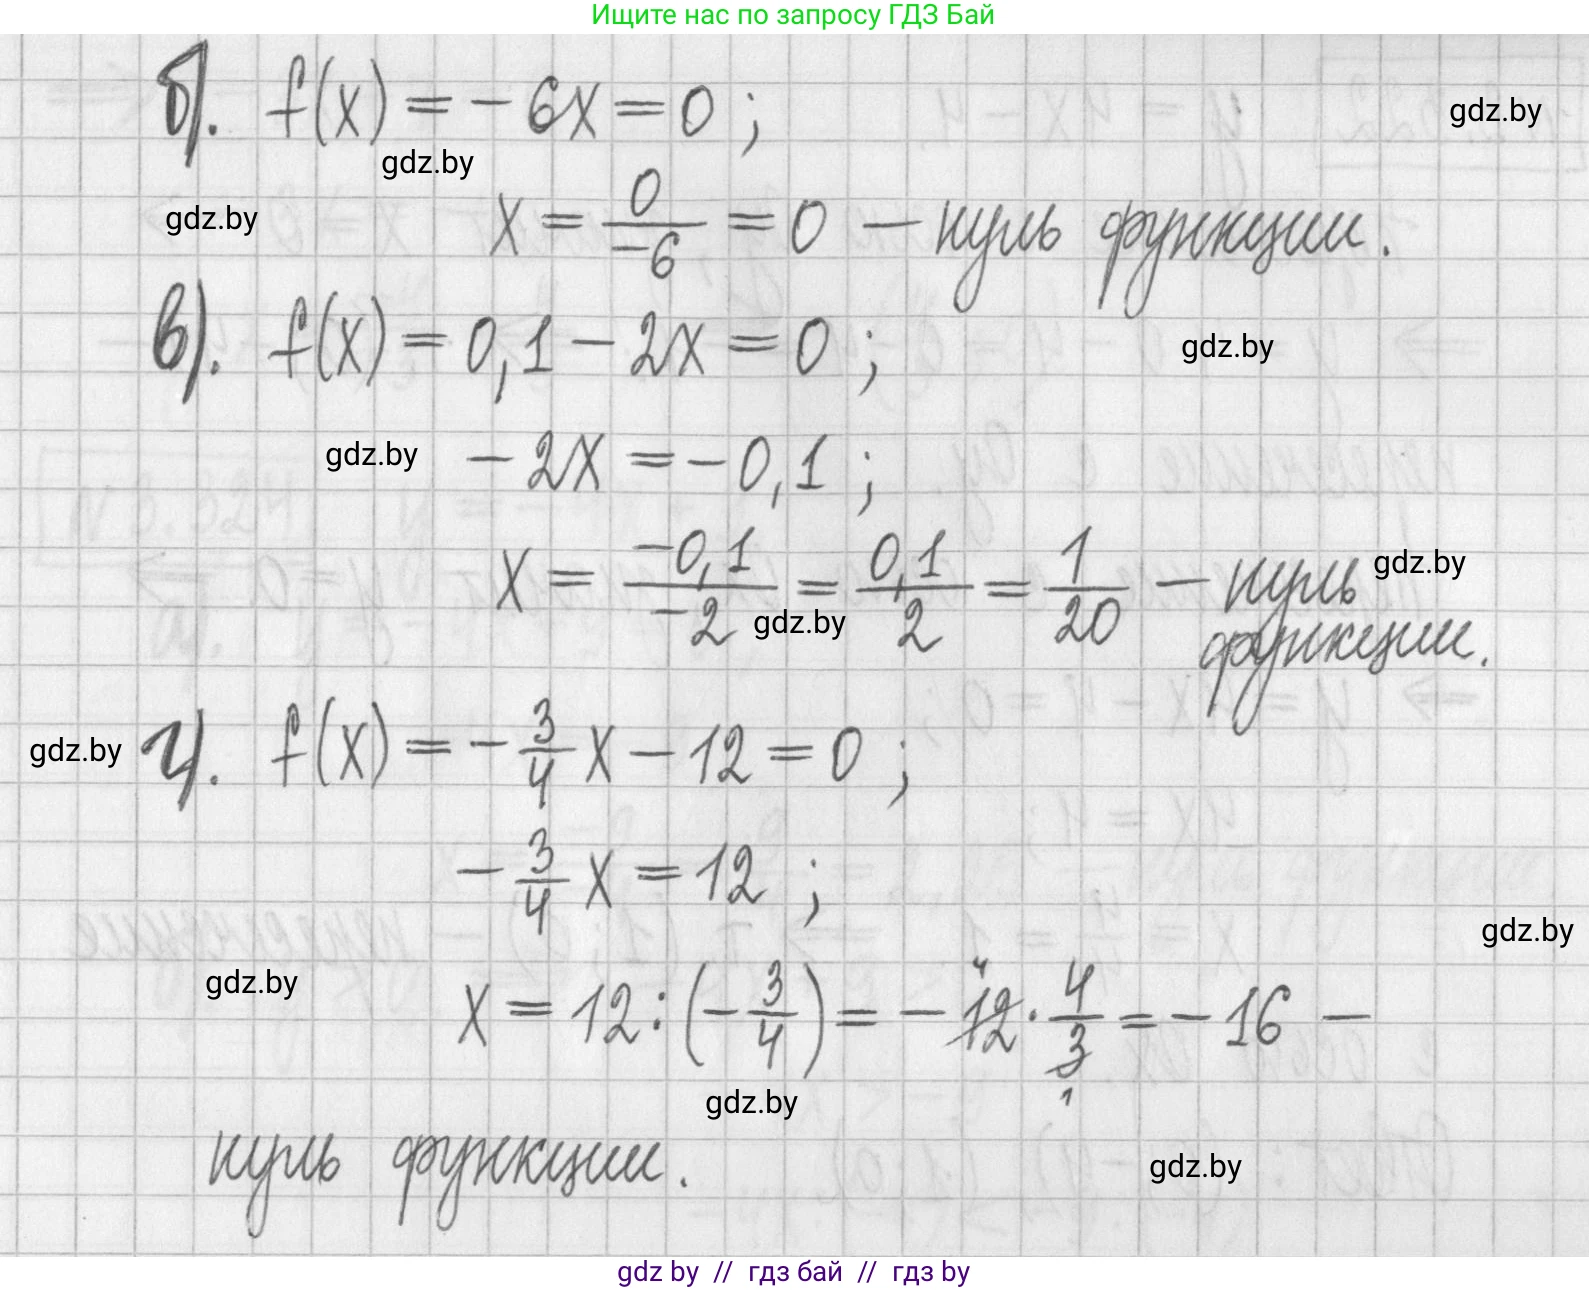 Ищите нас по запросу ГДЗ Бай
б). f(x) = -6x = 0 ;
gdz.by
gdz.by
gdz.by
x = 0/-6 = 0 — нуль функции.
в). f(x) = 0,1 - 2x = 0 ;
gdz.by
gdz.by
-2x = -0,1 ;
x = -0,1/-2 = 0,1/2 = 1/20 — нуль
gdz.by
gdz.by
функции.
gdz.by
г). f(x) = -3/4 x - 12 = 0 ;
-3/4 x = 12 ;
gdz.by
gdz.by
x = 12 : (-3/4) = -12 4 · 4/3 1 = -16 —
gdz.by
нуль функции.
gdz.by
gdz by // гдз бай // гдз by